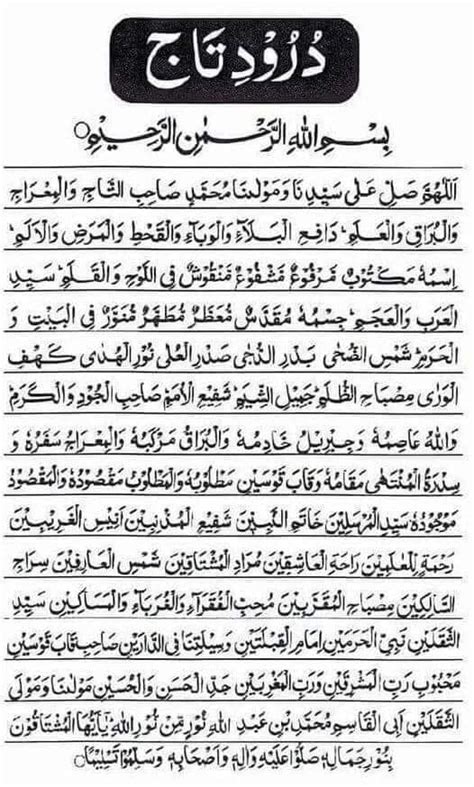 دُرُوْدِ تَاج
بِسْمِ اللهِ الرَّحْمٰنِ الرَّحِيْمِ○
اَللّٰهُمَّ صَلِّ عَلٰى سَيِّدِنَا وَمَوْلٰنَا مُحَمَّدٍ صَاحِبِ التَّاجِ وَالْمِعْرَاجِ
وَالْبُرَاقِ وَالْعَلَمِ ؕ دَافِعِ الْبَلَآءِ وَالْوَبَآءِ وَالْقَحْطِ وَالْمَرَضِ وَالْاَلَمِ ؕ
اِسْمُهٗ مَكْتُوْبٌ مَّرْفُوْعٌ مَّشْفُوْعٌ مَّنْقُوْشٌ فِى اللَّوْحِ وَالْقَلَمِ ؕ سَيِّدِ
الْعَرَبِ وَالْعَجَمِ ؕ جِسْمُهٗ مُقَدَّسٌ مُّعَطَّرٌ مُّطَهَّرٌ مُّنَوَّرٌ فِى الْبَيْتِ وَ
الْحَرَمِ ؕ شَمْسِ الضُّحٰى بَدْرِ الدُّجٰى صَدْرِ الْعُلٰى نُوْرِ الْهُدٰى كَهْفِ
الْوَرٰى مِصْبَاحِ الظُّلَمِ ؕ جَمِيْلِ الشِّيَمِ ؕ شَفِيْعِ الْاُمَمِ ؕ صَاحِبِ الْجُوْدِ وَالْكَرَمِ ؕ
وَاللهُ عَاصِمُهٗ وَجِبْرِيْلُ خَادِمُهٗ وَالْبُرَاقُ مَرْكَبُهٗ وَالْمِعْرَاجُ سَفَرُهٗ وَ
سِدْرَةُ الْمُنْتَهٰى مَقَامُهٗ وَقَابَ قَوْسَيْنِ مَطْلُوْبُهٗ وَالْمَطْلُوْبُ مَقْصُوْدُهٗ وَالْمَقْصُوْدُ
مَوْجُوْدُهٗ سَيِّدِ الْمُرْسَلِيْنَ خَاتَمِ النَّبِيِّيْنَ شَفِيْعِ الْمُذْنِبِيْنَ اَنِيْسِ الْغَرِيْبِيْنَ
رَحْمَةٍ لِّلْعٰلَمِيْنَ رَاحَةِ الْعَاشِقِيْنَ مُرَادِ الْمُشْتَاقِيْنَ شَمْسِ الْعَارِفِيْنَ سِرَاجِ
السَّالِكِيْنَ مِصْبَاحِ الْمُقَرَّبِيْنَ مُحِبِّ الْفُقَرَآءِ وَالْغُرَبَآءِ وَالْمَسَاكِيْنِ سَيِّدِ
الثَّقَلَيْنِ نَبِيِّ الْحَرَمَيْنِ اِمَامِ الْقِبْلَتَيْنِ وَسِيْلَتِنَا فِى الدَّارَيْنِ صَاحِبِ قَابَ قَوْسَيْنِ
مَحْبُوْبِ رَبِّ الْمَشْرِقَيْنِ وَرَبِّ الْمَغْرِبَيْنِ جَدِّ الْحَسَنِ وَالْحُسَيْنِ مَوْلٰنَا وَمَوْلَى
الثَّقَلَيْنِ اَبِى الْقَاسِمِ مُحَمَّدِ بْنِ عَبْدِ اللهِ نُوْرٍ مِّنْ نُّوْرِ اللهِ ؕ يٰٓاَيُّهَا الْمُشْتَاقُوْنَ
بِنُوْرِ جَمَالِهٖ صَلُّوْا عَلَيْهِ وَاٰلِهٖ وَاَصْحَابِهٖ وَسَلِّمُوْا تَسْلِيْمًا ○